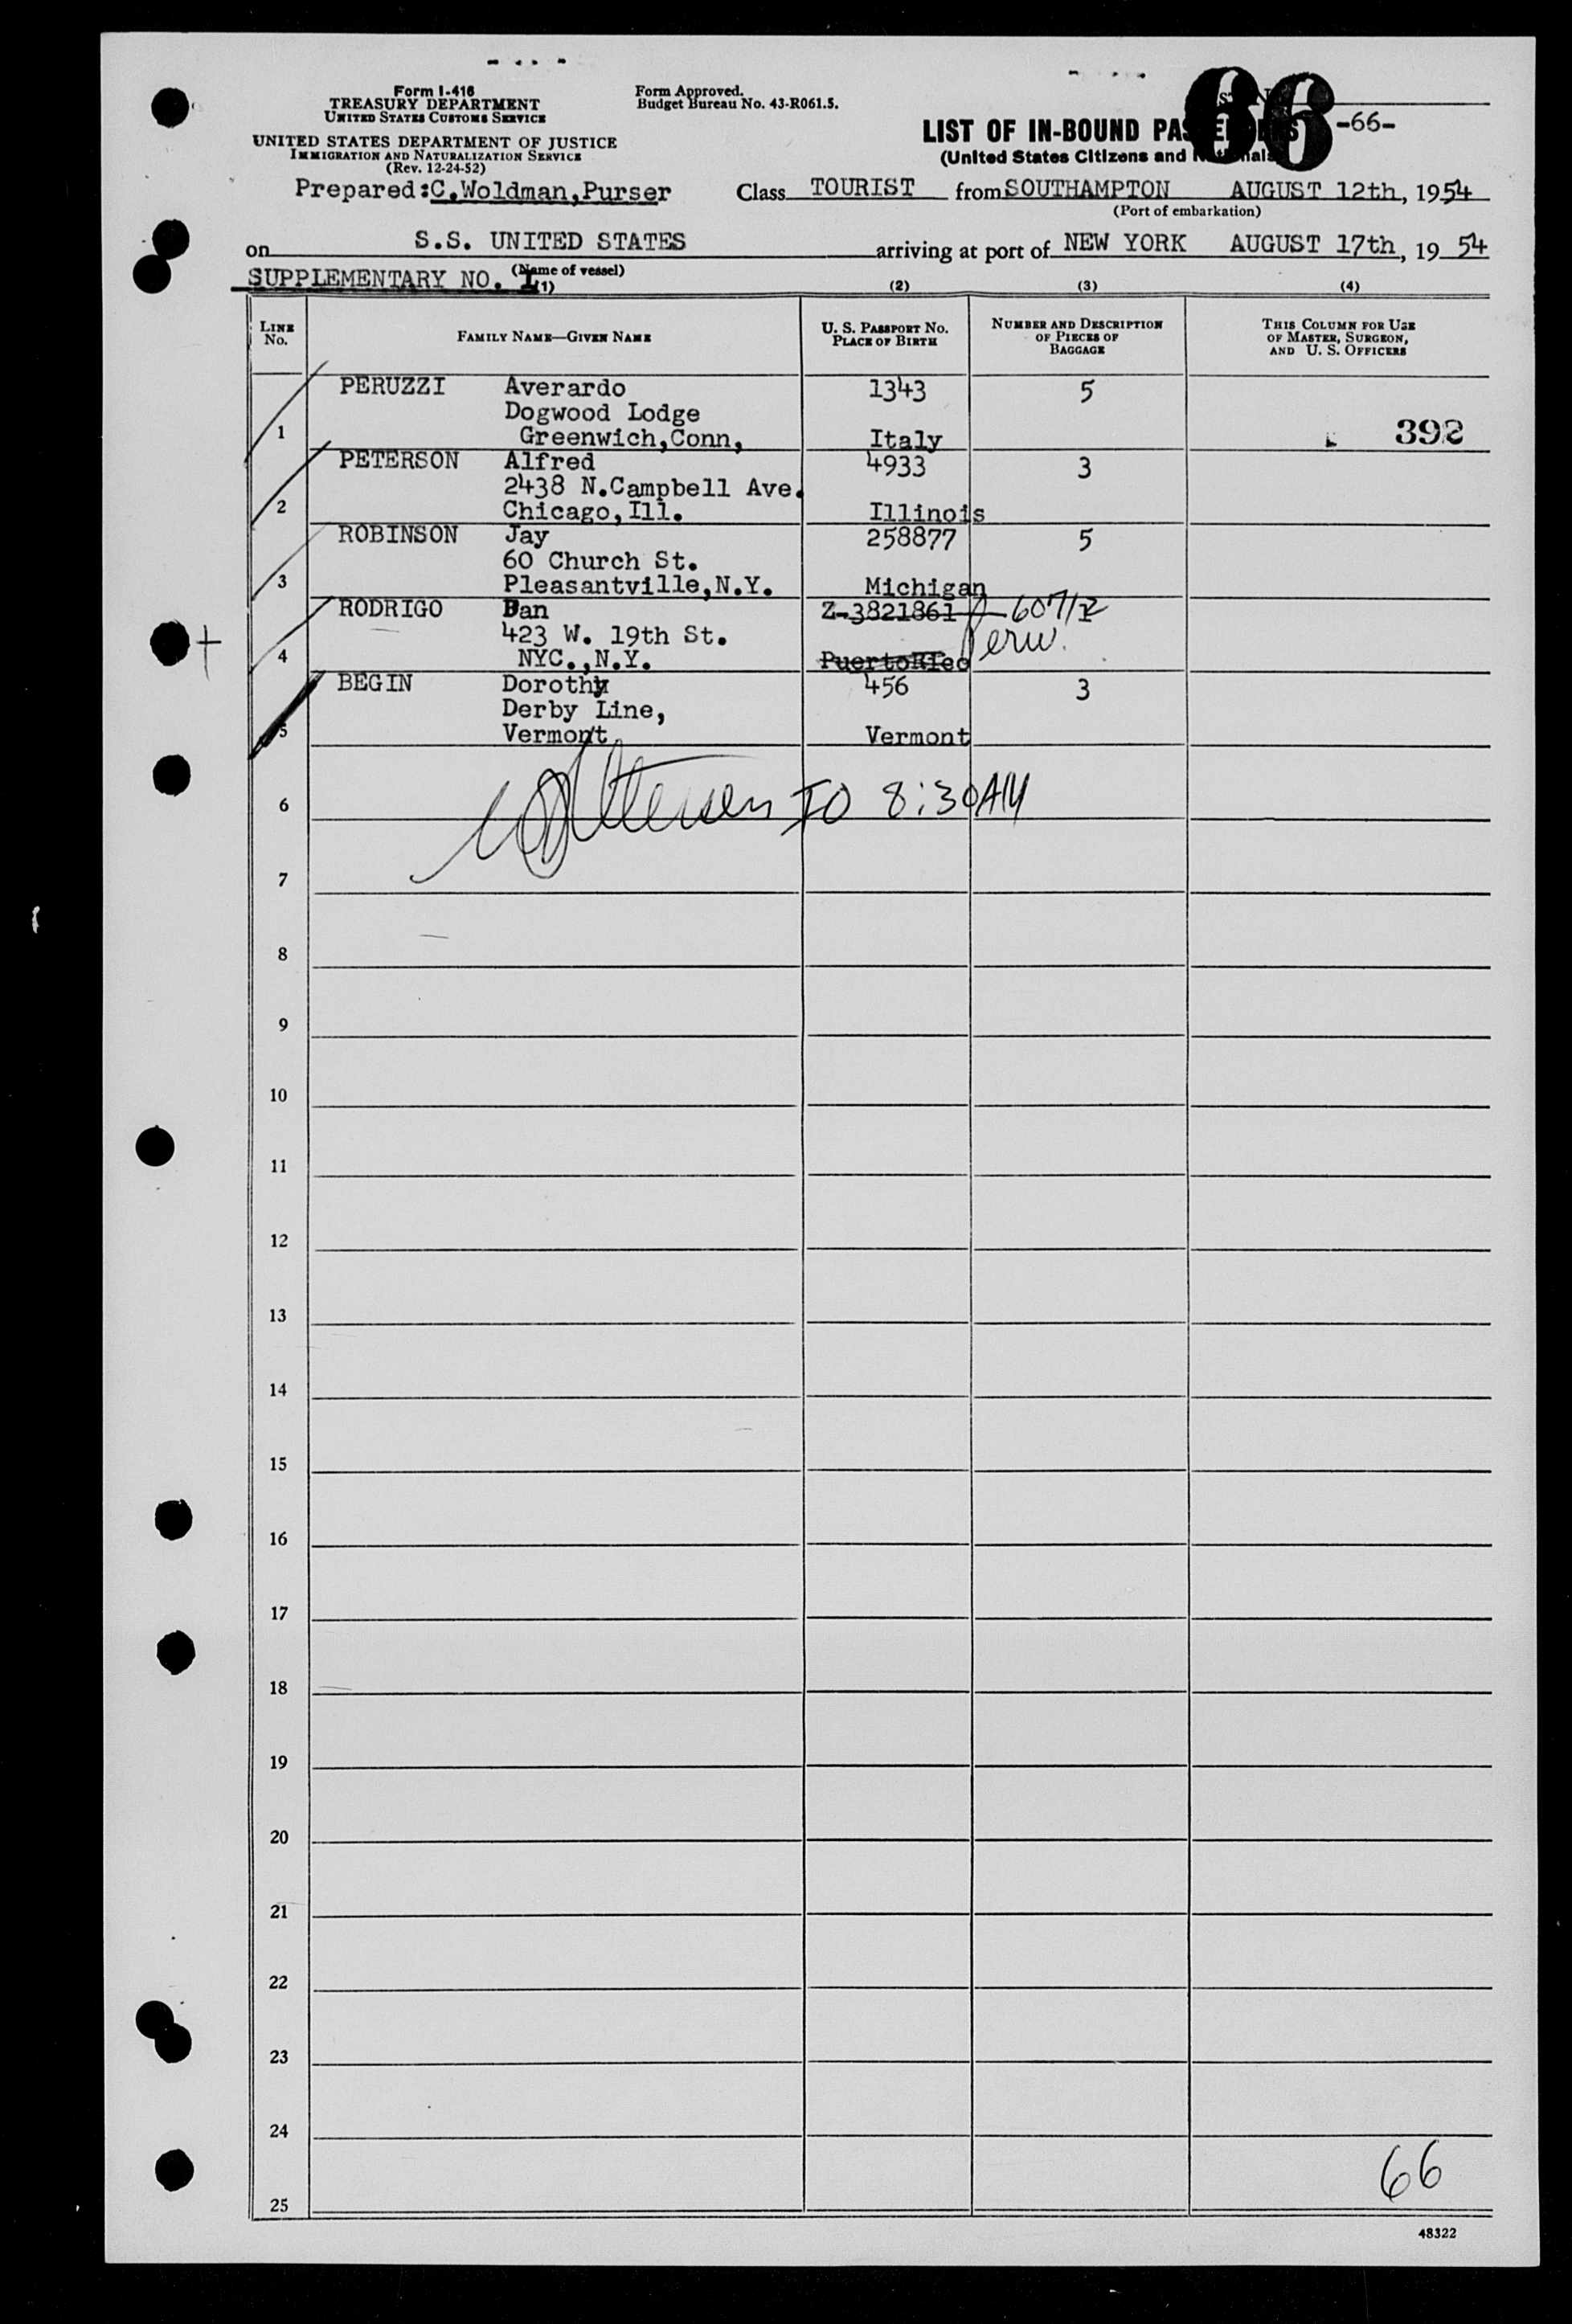 Form I-416
TREASURY DEPARTMENT
UNITED STATES CUSTOMS SERVICE
UNITED STATES DEPARTMENT OF JUSTICE
IMMIGRATION AND NATURALIZATION SERVICE
(Rev. 12-24-52)
Form Approved.
Budget Bureau No. 43-R061.5.
66
-66-
LIST OF IN-BOUND PASSENGERS
(United States Citizens and Nationals
Prepared:C.Woldman,Purser
Class TOURIST from SOUTHAMPTON AUGUST 12th, 1954
(Port of embarkation)
on S.S. UNITED STATES arriving at port of NEW YORK AUGUST 17th, 19 54
(Name of vessel)
SUPPLEMENTARY NO. I
(1) (2) (3) (4)
LINE No. FAMILY NAME—GIVEN NAME U. S. PASSPORT NO. PLACE OF BIRTH NUMBER AND DESCRIPTION OF PIECES OF BAGGAGE THIS COLUMN FOR USE OF MASTER, SURGEON, AND U. S. OFFICERS
PERUZZI Averardo 1343 5
Dogwood Lodge
1 Greenwich,Conn, Italy 392
PETERSON Alfred 4933 3
2438 N.Campbell Ave.
2 Chicago,Ill. Illinois
ROBINSON Jay 258877 5
60 Church St.
3 Pleasantville,N.Y. Michigan
RODRIGO Dan Z-3821861 607/2
423 W. 19th St. Peru.
4 NYC.,N.Y. PuertoRico
BEGIN Dorothy 456 3
Derby Line,
5 Vermont, Vermont
6 IO 8:30AM
7
8
9
10
11
12
13
14
15
16
17
18
19
20
21
22
23
24
66
25
48322